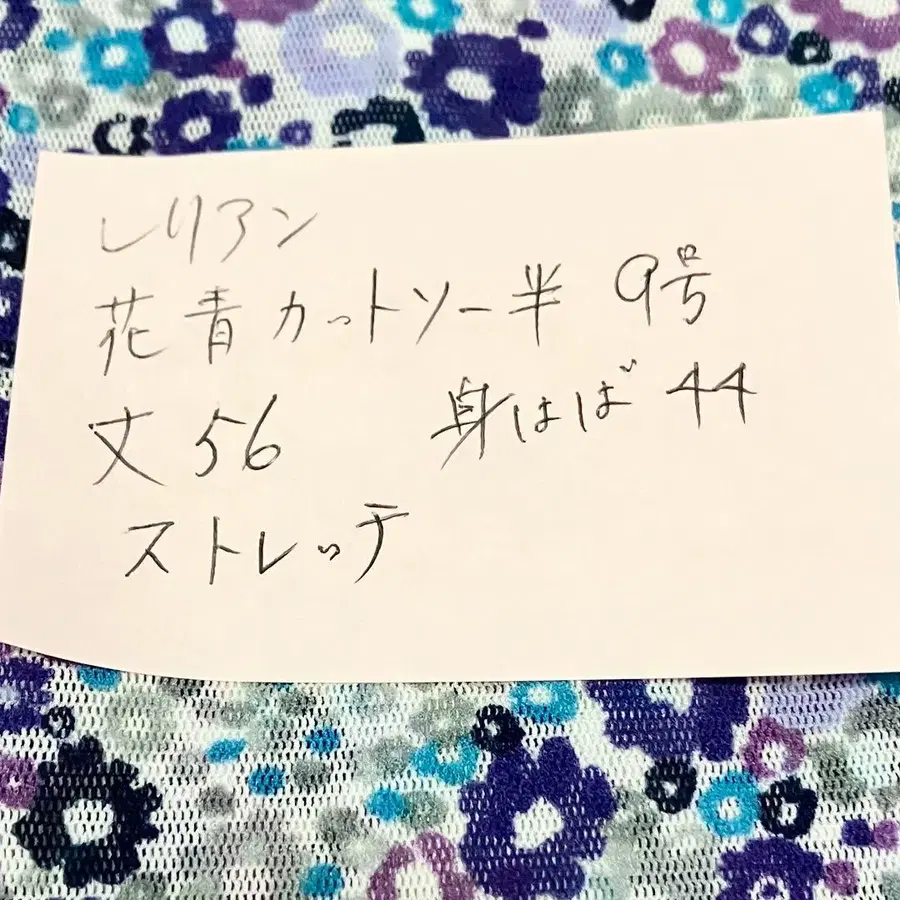 レリアン
花青カットソー半 9号
丈56 身はば44
ストレッチ